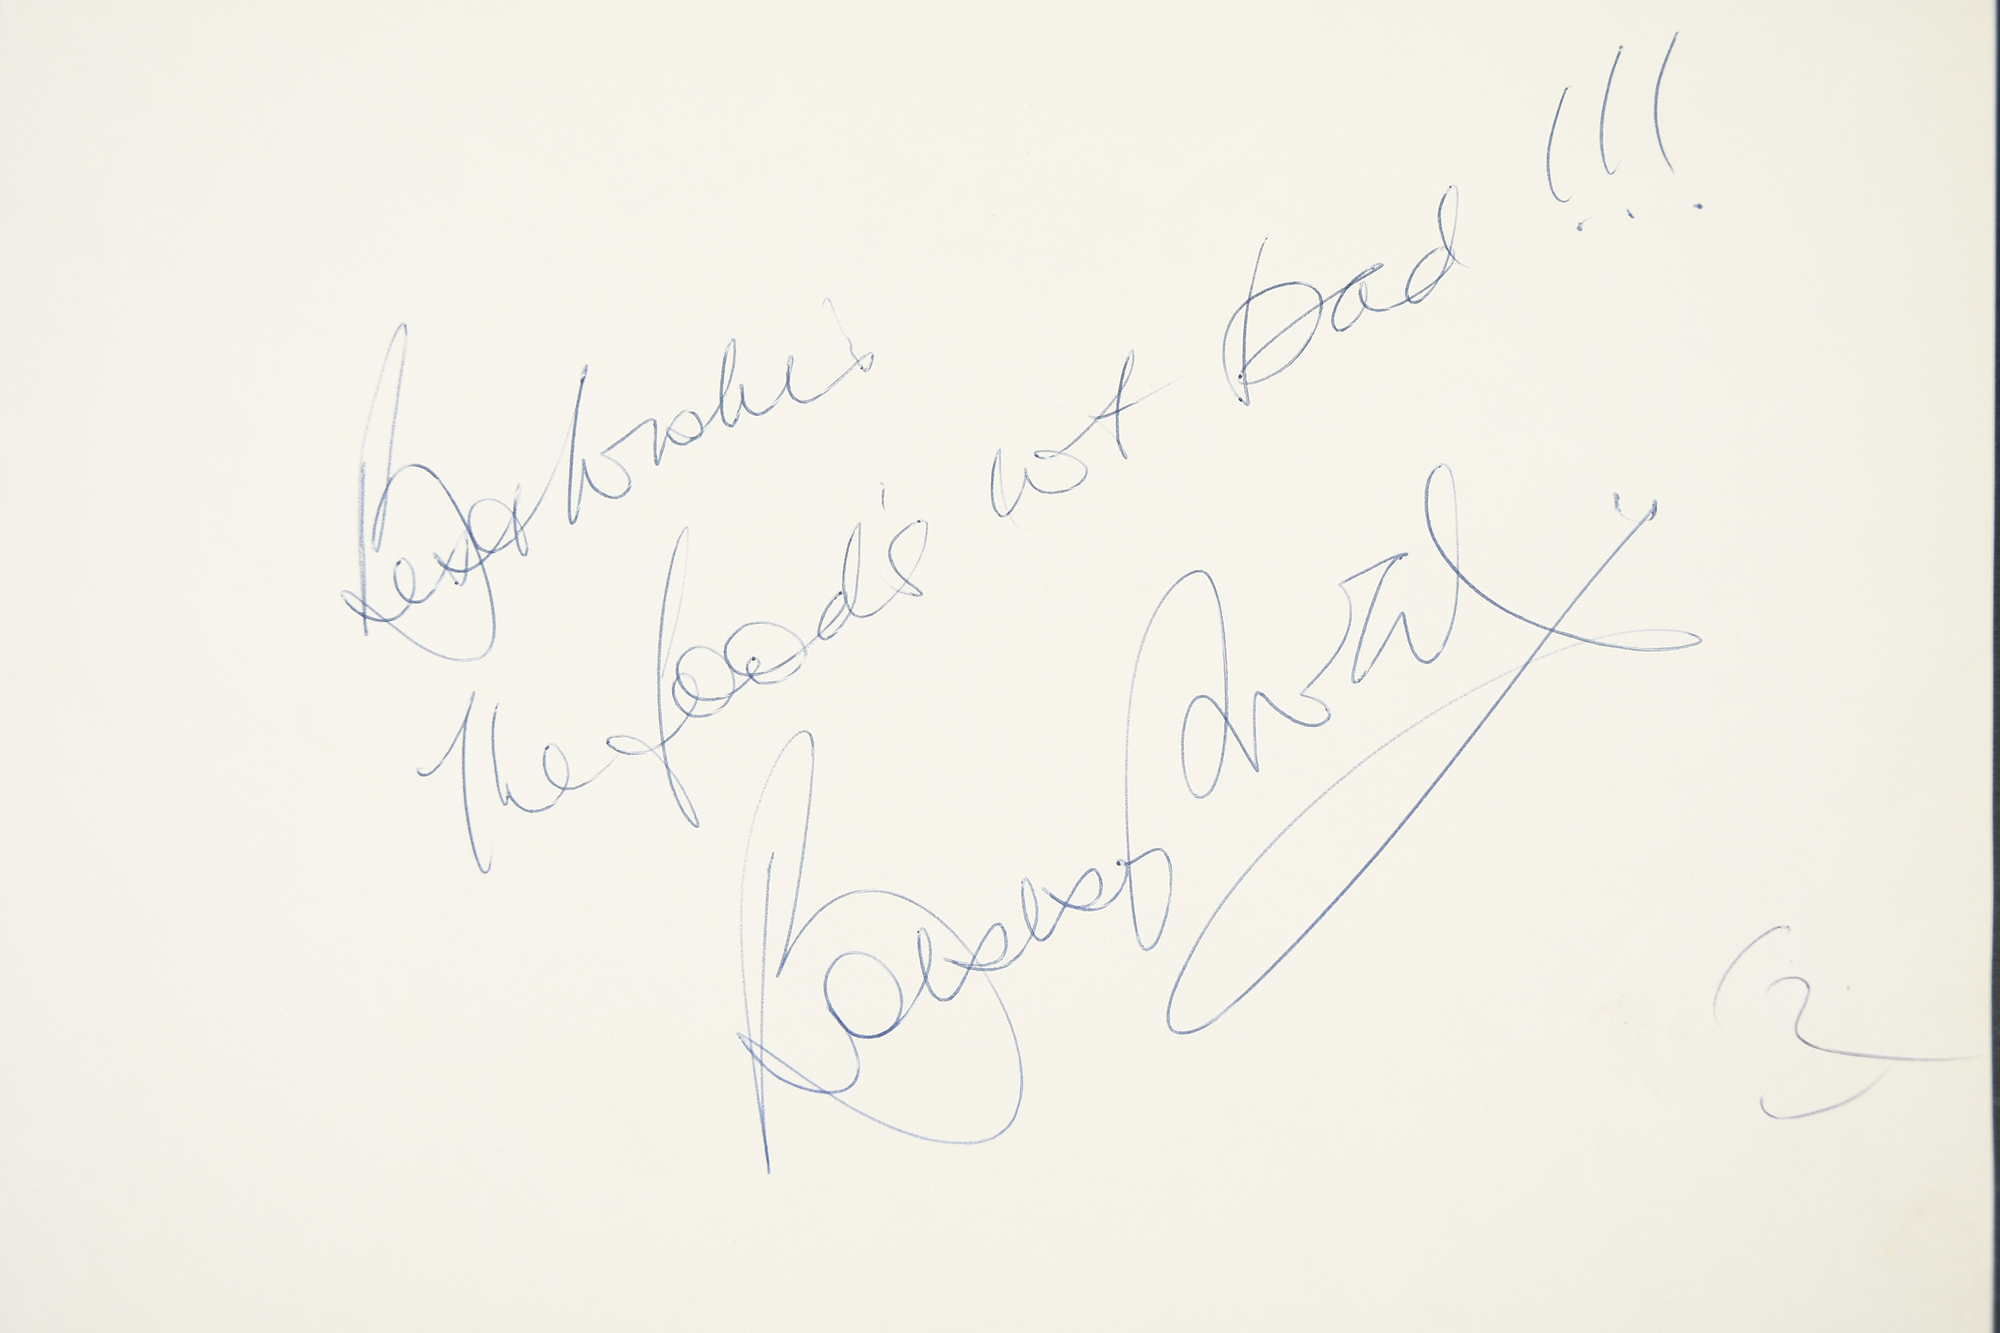 Best wishes
The food's not bad !!!